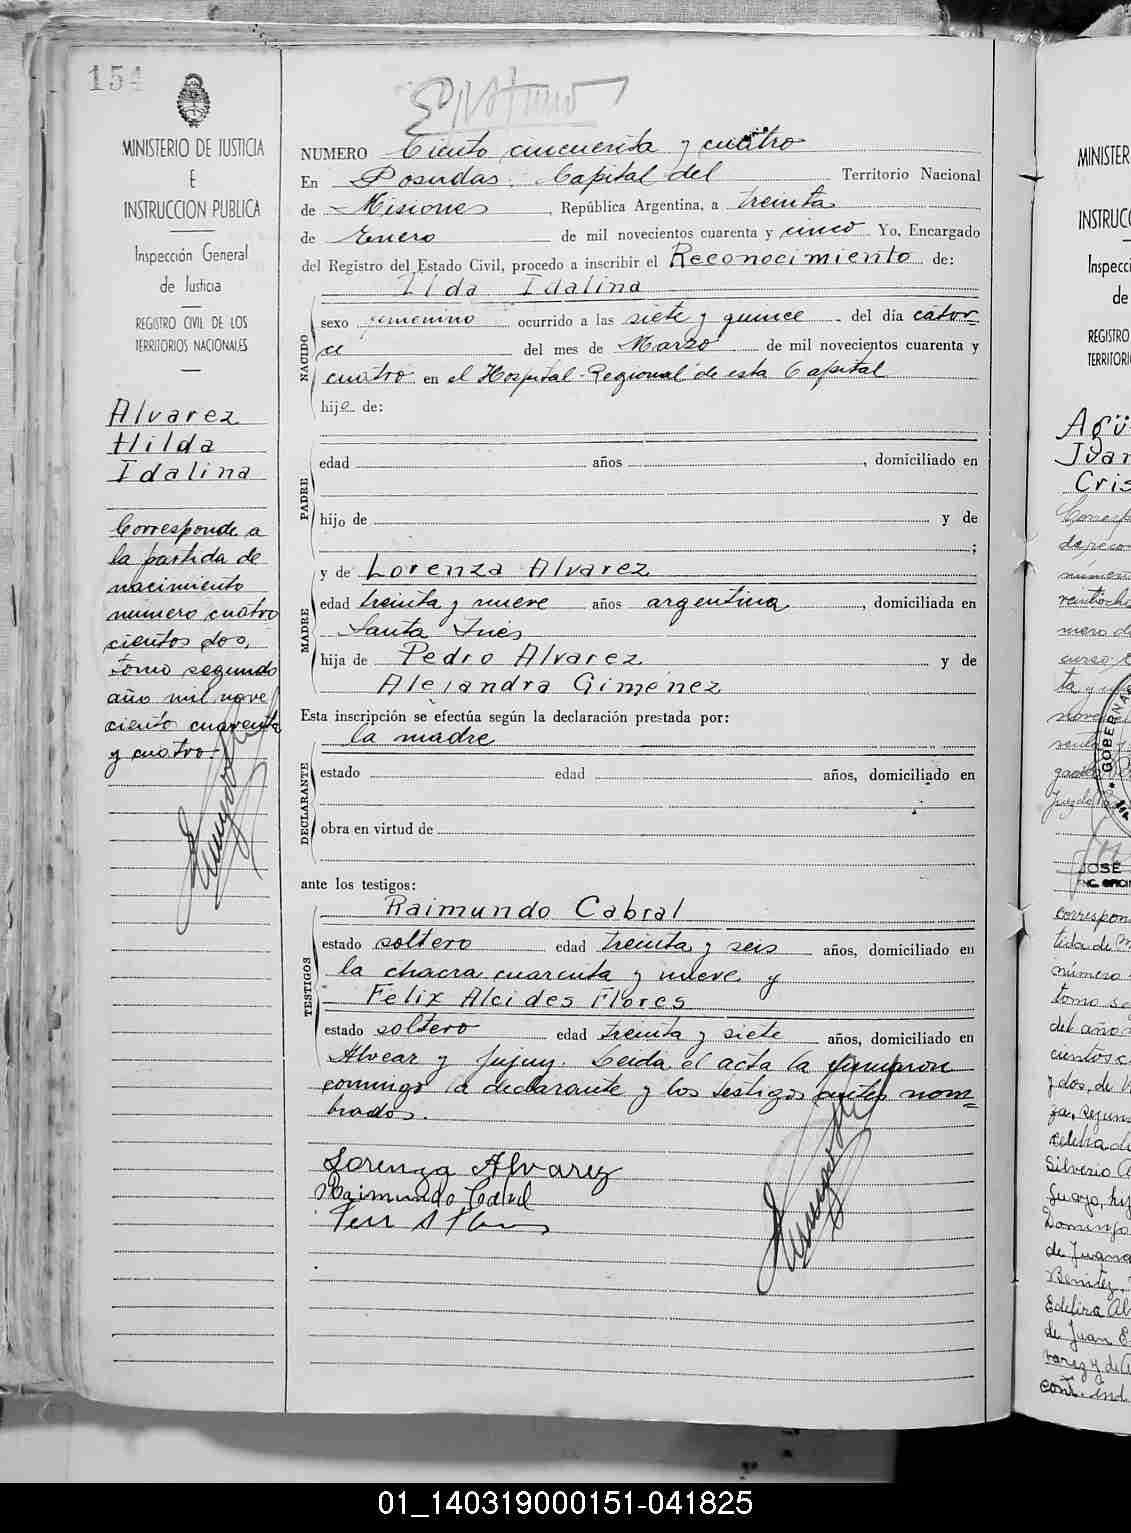 154
MINISTERIO DE JUSTICIA
E
INSTRUCCION PUBLICA
Inspección General
de Justicia
REGISTRO CIVIL DE LOS
TERRITORIOS NACIONALES
Alvarez
Hilda
Idalina
Corresponde a
la partida de
nacimiento
número cuatro
cientos dos,
tomo segundo
año mil nove
ciento cuarenta
y cuatro.
NUMERO Ciento cincuenta y cuatro
En Posadas. Capital del Territorio Nacional
de Misiones, República Argentina, a treinta
de Enero de mil novecientos cuarenta y cinco Yo, Encargado
del Registro del Estado Civil, procedo a inscribir el Reconocimiento de:
Ilda Idalina
NACIDO
sexo femenino ocurrido a las siete y quince del día cator-
ce del mes de Marzo de mil novecientos cuarenta y
cuatro en el Hospital Regional de esta Capital
hija de:
PADRE
edad años , domiciliado en
hijo de y de
;
y de Lorenza Alvarez
MADRE
edad treinta y nueve años argentina, domiciliada en
Santa Inés
hija de Pedro Alvarez y de
Alejandra Giménez
Esta inscripción se efectúa según la declaración prestada por:
la madre
DECLARANTE
estado edad años, domiciliado en
obra en virtud de
ante los testigos:
Raimundo Cabral
TESTIGOS
estado soltero edad treinta y seis años, domiciliado en
la chacra cuarenta y nueve y
Felix Alcides Flores
estado soltero edad treinta y siete años, domiciliado en
Alvear y Jujuy. Leida el acta la firmaron
conmigo la declarante y los testigos antes nom=
brados.
Lorenza Alvarez
Raimundo Cabral
MINISTER
INSTRUCC
Inspecci
de
REGISTRO
TERRITORI
Agü
Juan
Cris
GOBERNA
JOSE
ENC. OFICI
correspon
tida de
número
tomo se
del año
cientos c
y dos, de
Silverio
Domingo
de Juana
Benitez,
de Juan E
01_140319000151-041825